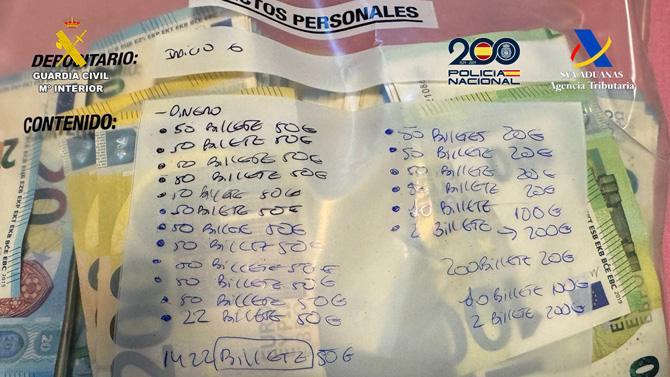 CTOS PERSONALES
DEPOSITARIO:
INDICIO 6
GUARDIA CIVIL
Mº INTERIOR
200
POLICÍA
NACIONAL
SVA ADUANAS
Agencia Tributaria
CONTENIDO:
- DINERO
• 50 BILLETE 50€
• 50 BILLETE 50€
• 50 BILLETE 50€
• 50 BILLETE 50€
• 50 BILLETE 50€
• 50 BILLETE 50€
• 50 BILLETE 50€
• 50 BILLETE 50€
• 50 BILLETE 50€
• 50 BILLETE 50€
• 50 BILLETE 50€
• 22 BILLETE 50€
1422 BILLETE 50€
• 50 BILLETES 20€
• 50 BILLETE 20€
• 50 BILLETE 20€
• 50 BILLETE 20€
BILLETE 100€
• 2 BILLETE → 200€
200 BILLETE 20€
BILLETE 100€
2 BILLETE 200€